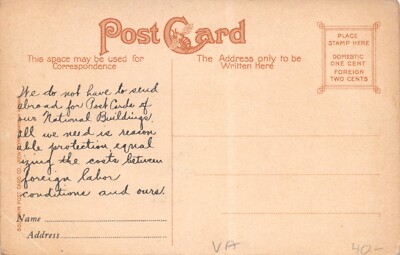 Post Card
This space may be used for
Correspondence
The Address only to be
Written Here
PLACE
STAMP HERE
DOMESTIC
ONE CENT
FOREIGN
TWO CENTS
We do not have to send
abroad for Post Cards of
our National Buildings.
All we need is reason
able protection equal
izing the costs between
foreign labor
conditions and ours.
Name
Address
VA
40-